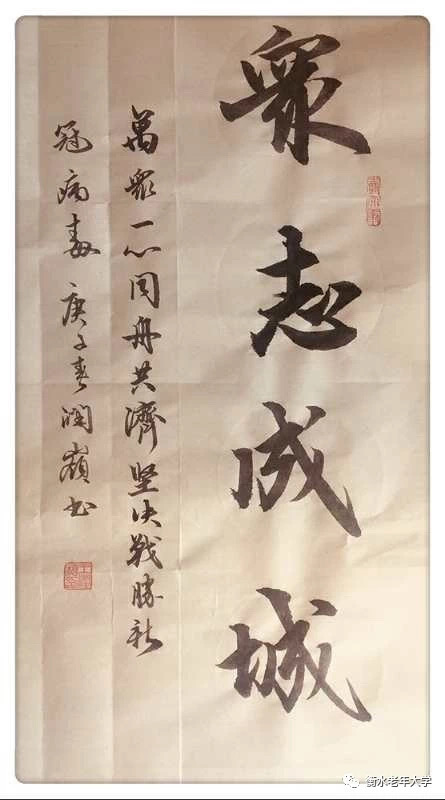 衆志成城
萬衆一心同舟共濟坚决战勝新
冠病毒 庚子春润嶺书
衡水老年大学